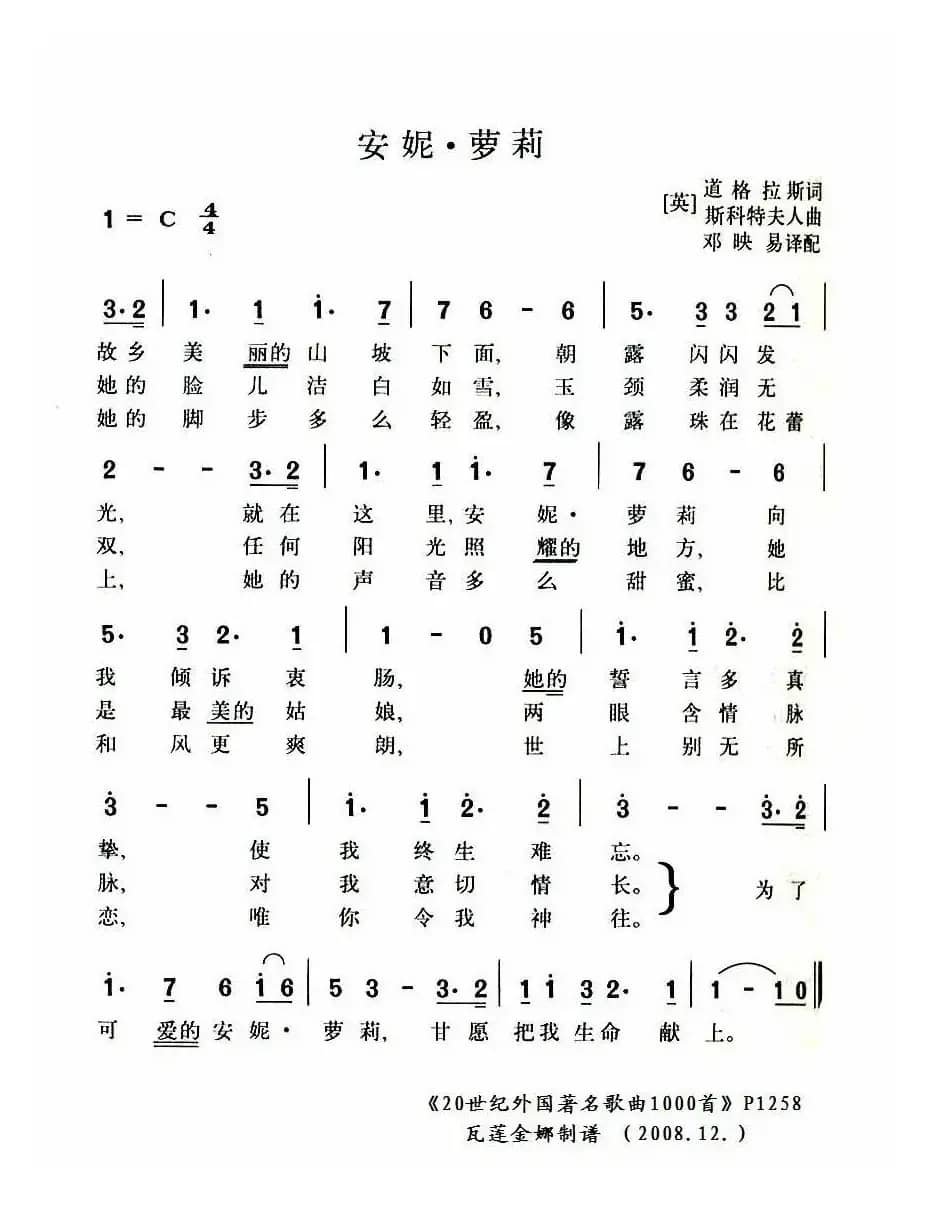 安妮·萝莉
[英] 道格拉斯词
1 = C 4/4
斯科特夫人曲
邓映易译配
3·2 | 1· 1 1· 7 | 7 6 - 6 | 5· 3 3 2 1 |
故乡美丽的山坡下面,朝露闪闪发
她的脸儿洁白如雪,玉颈柔润无
她的脚步多么轻盈,像露珠在花蕾
2 - - 3·2 | 1· 1 1· 7 | 7 6 - 6 |
光,就在这里,安妮·萝莉向
双,任何阳光照耀的地方,她
上,她的声音多么甜蜜,比
5· 3 2· 1 | 1 - 0 5 | 1· 1 2· 2 |
我倾诉衷肠,她的誓言多真
是最美的姑娘,两眼含情脉
和风更爽朗,世上别无所
3 - - 5 | 1· 1 2· 2 | 3 - - 3·2 |
挚,使我终生难忘。
脉,对我意切情长。} 为了
恋,唯你令我神往。
1· 7 6 1 6 | 5 3 - 3·2 | 1 1 3 2· 1 | 1 - 1 0 ‖
可爱的安妮·萝莉,甘愿把我生命献上。
《20世纪外国著名歌曲1000首》P1258
瓦莲金娜制谱 (2008.12.)